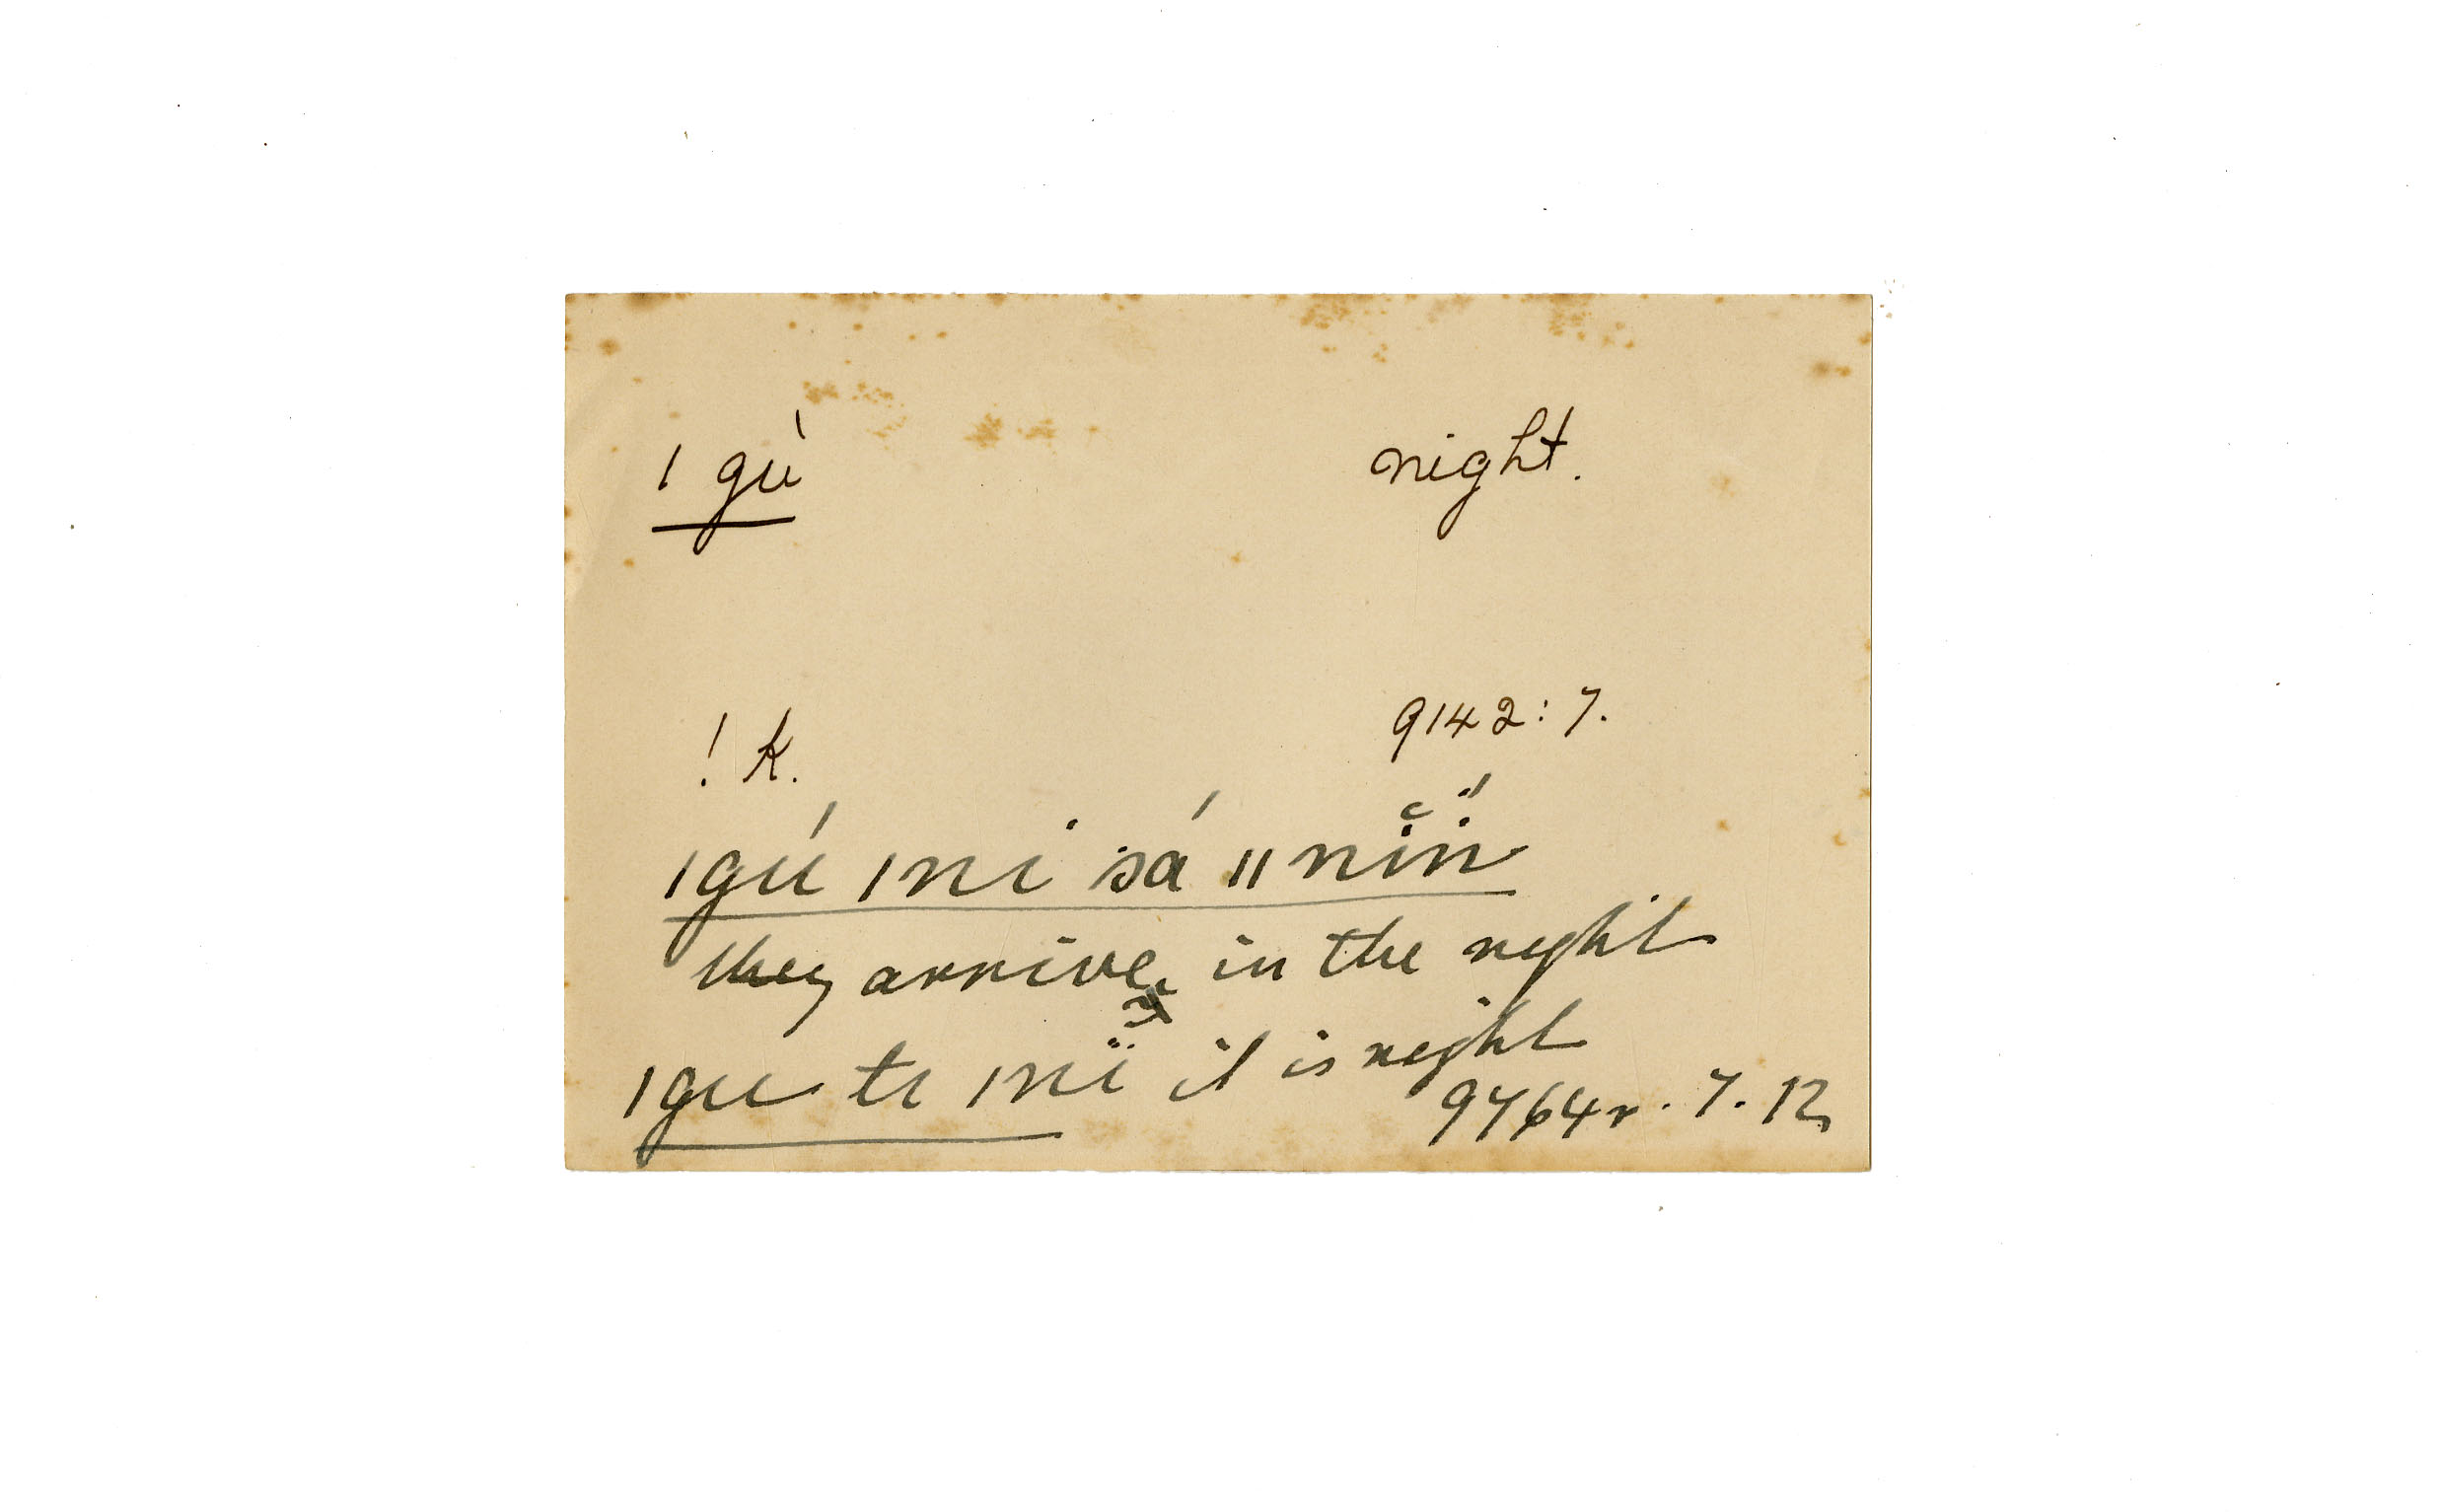 ǀ gù night.
! k. 9142:7.
ǀgú ǀni sá ǁnĭn̋
they arrive in the night
ǀgu ti ǀnï it is night
9764r. 7. 12